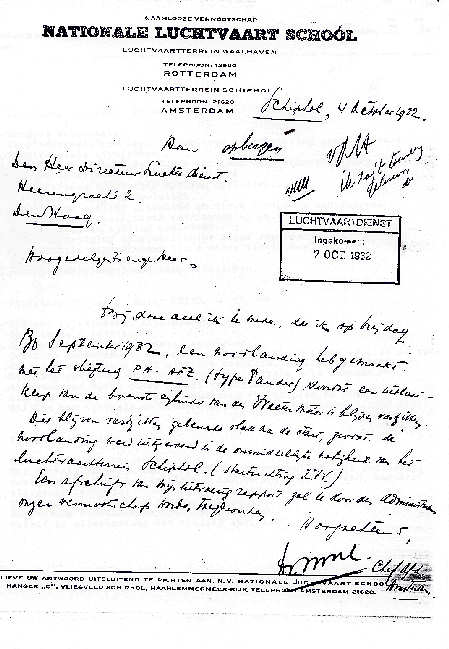 NAAMLOOZE VENNOOTSCHAP
NATIONALE LUCHTVAART SCHOOL
LUCHTVAARTTERREIN WAALHAVEN
TELEPHOON
ROTTERDAM
LUCHTVAARTTERREIN SCHIPHOL
TELEPHOON 21020
AMSTERDAM
Schiphol, 4 October 1932.
Aan
opbergen
Den Heer Directeur Luchtv. Dienst.
Heerengracht 2
Den Haag.
LUCHTVAARTDIENST
Ingekomen:
7 OCT. 1932
Hoogedelgestrenge Heer,
Hij deze deel ik U mede, dat ik op Vrijdag
30 September 1932, een noodlanding heb gemaakt
met het vliegtuig PH-AFZ. (type Pander) waarvan een uitlaat-
klep van de bovenste cylinder van den motor is blijven vastzitten.
Dit blijven vastzitten gebeurde vlak na de start, zoodat de
noodlanding werd uitgevoerd in de onmiddellijke nabijheid van het
luchtvaartterrein Schiphol. (
Een afschrift van mijn rapport zal U door de administratie
onzer vennootschap worden toegezonden.
Hoogachtend,
Chef
Amsterdam
LIEVE UW ANTWOORD UITSLUITEND TE RICHTEN AAN: N.V. NATIONALE LUCHTVAART SCHOOL
HANGER „C", VLIEGVELD SCHIPHOL, HAARLEMMERMEER-RIJK, TELEPHOON AMSTERDAM 21020.